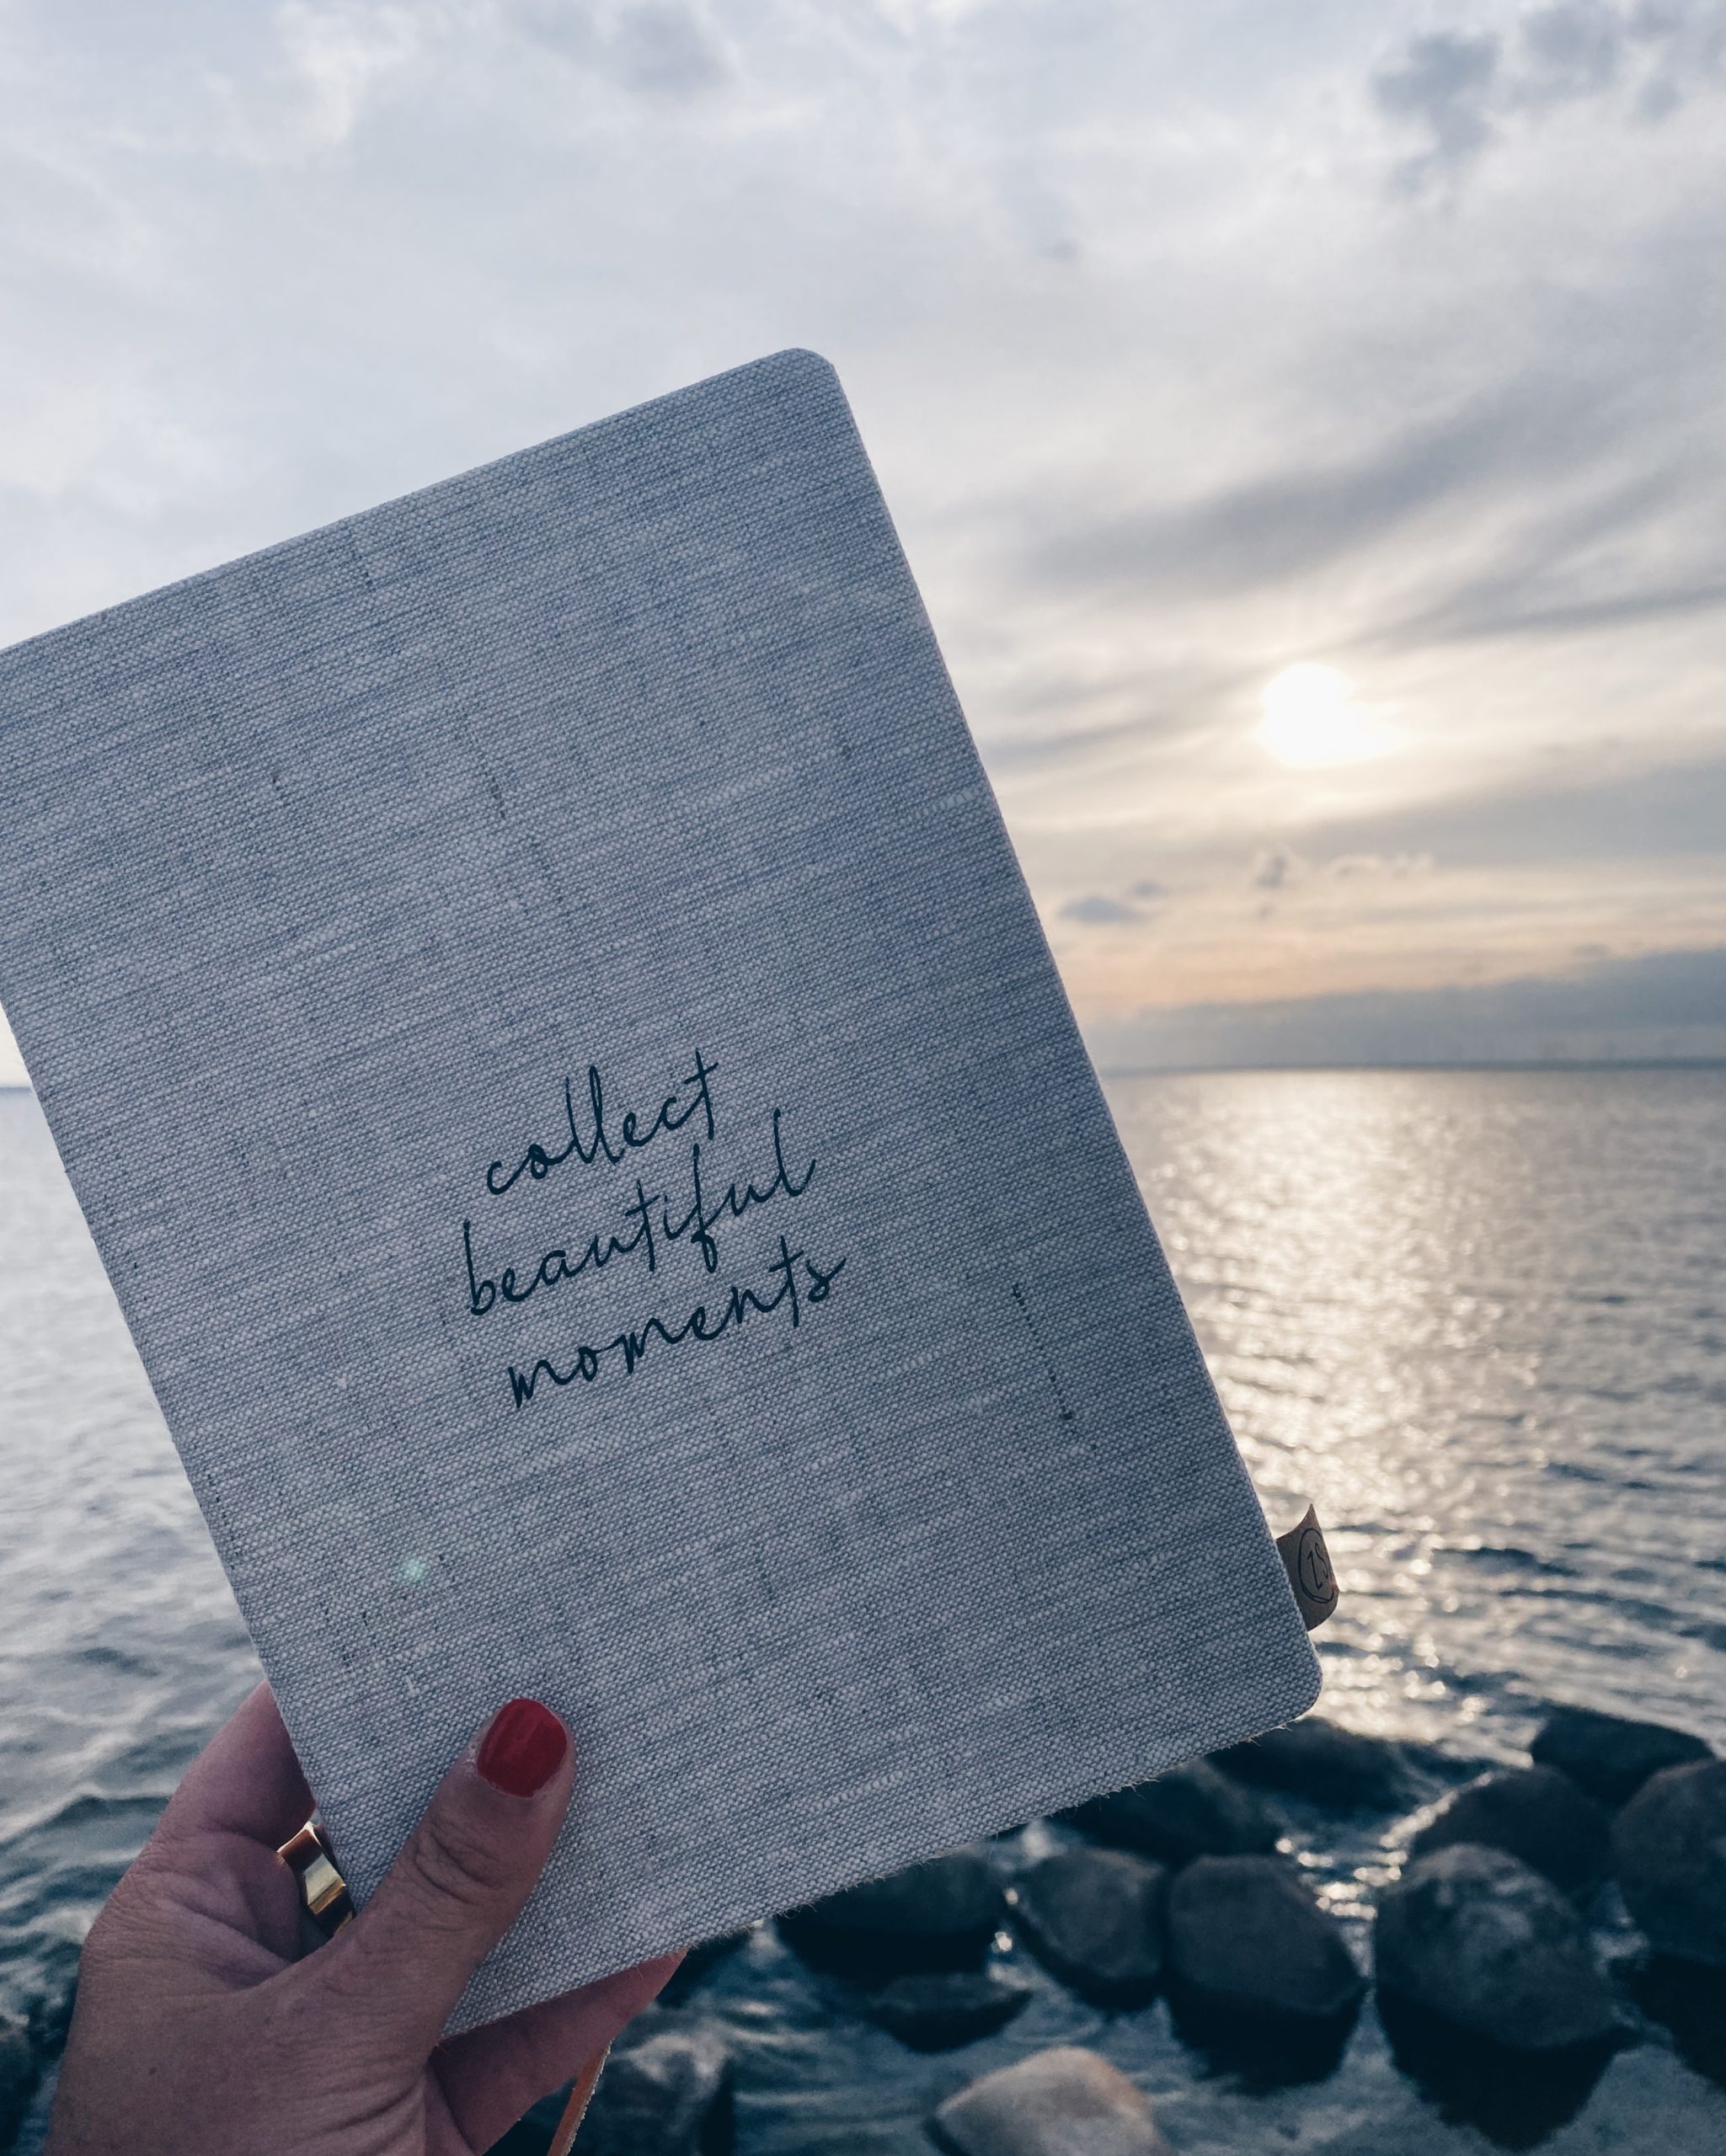 collect
beautiful
moments
ZS